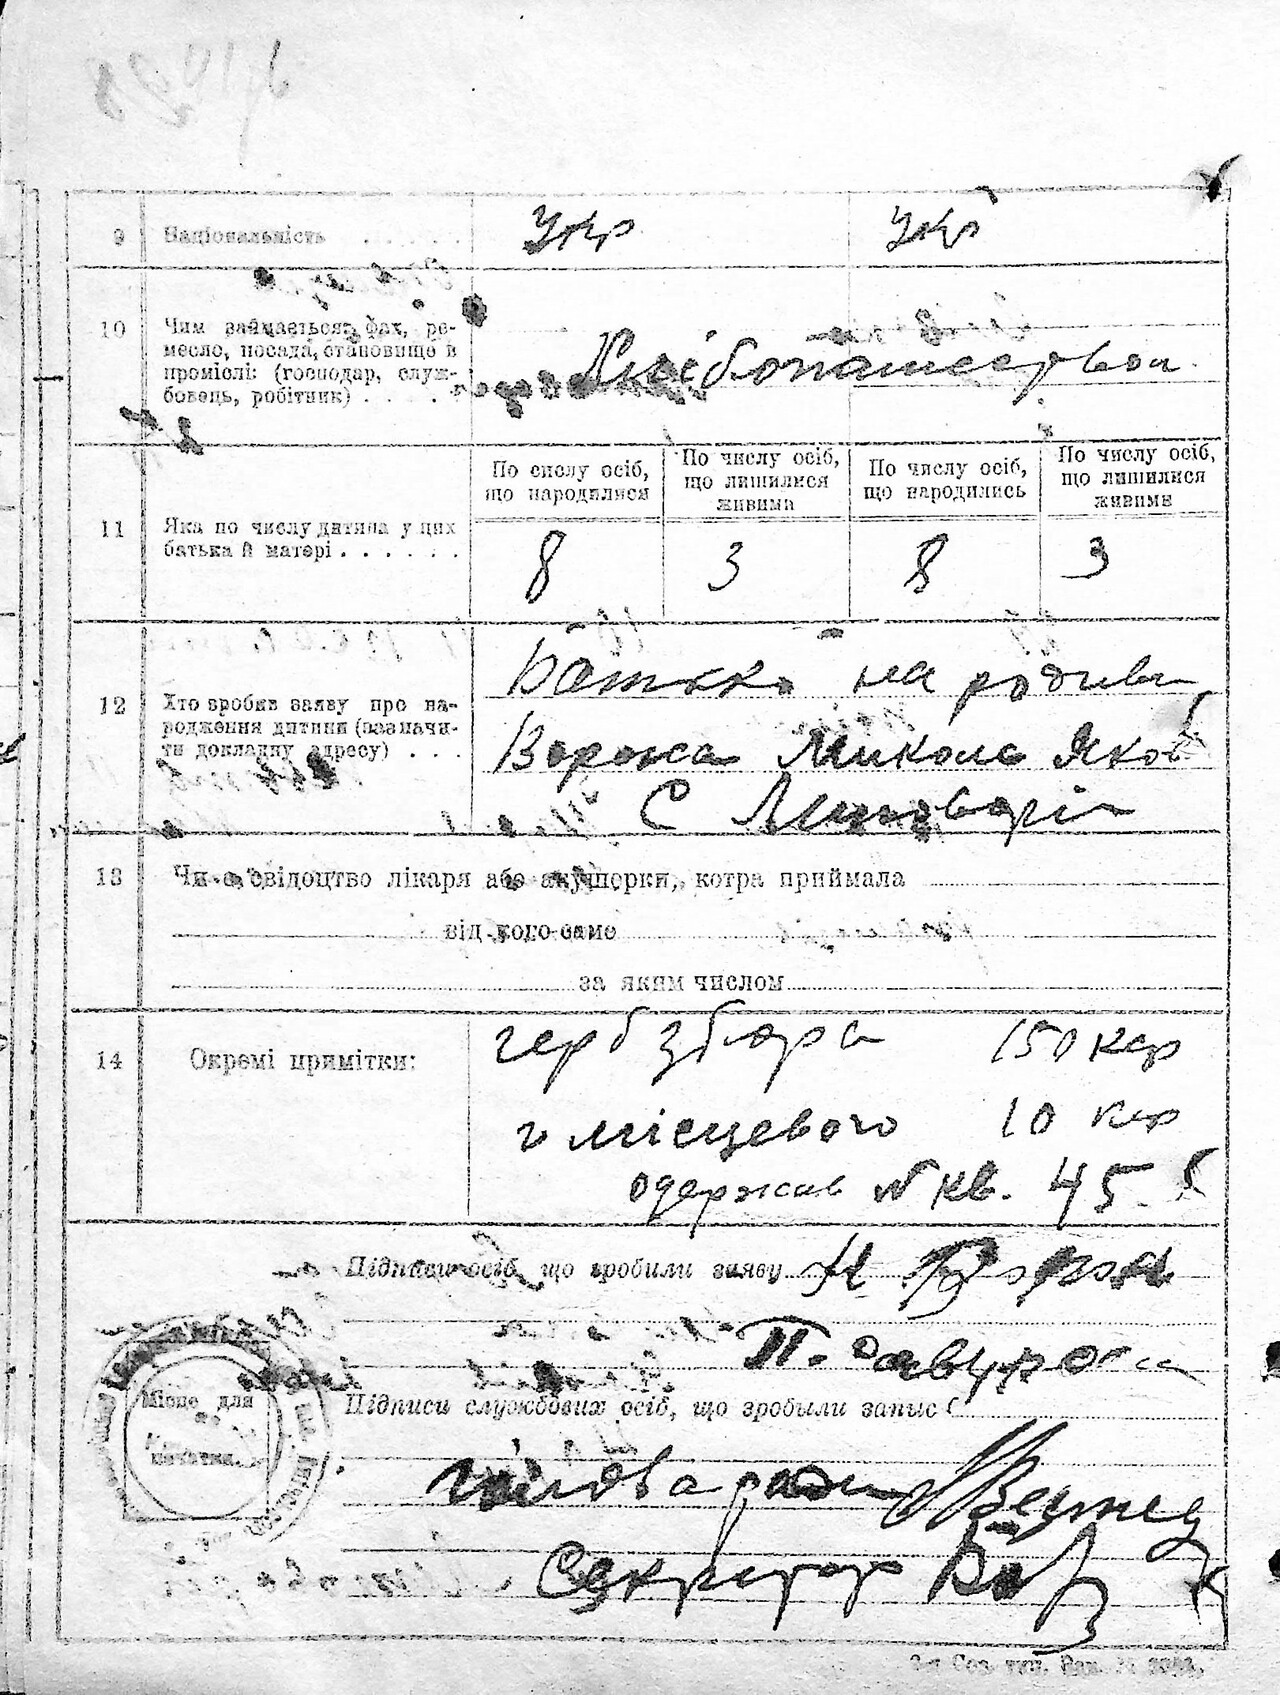 9 Національність . . . . . Укр Укр
10 Чим займається: фах, ре-
месло, посада, становище в
проміслі: (господар, служ-
бовець, робітник) . . . .
Хлібопашество
По числу осіб, що народилися
По числу осіб, що лишилися живими
По числу осіб, що народились
По числу осіб, що лишилися живими
11 Яка по числу дитина у цих
батька й матері . . . . . .
8 3 8 3
12 Хто зробив заяву про на-
родження дитини (зазначи-
ти докладну адресу) . . .
Батько
Ворона Микола Яков
С
13 Чи є свідоцтво лікаря або акушерки, котра приймала
від кого саме
за яким числом
14 Окремі примітки:
герб збора 150 кар
місцевого 10 кар
одержав № кв. 45
Підписи осіб, що зробили заяву
П.
Місце для
печатки.
Підписи службових осіб, що зробили запис
голова ради
Секретар